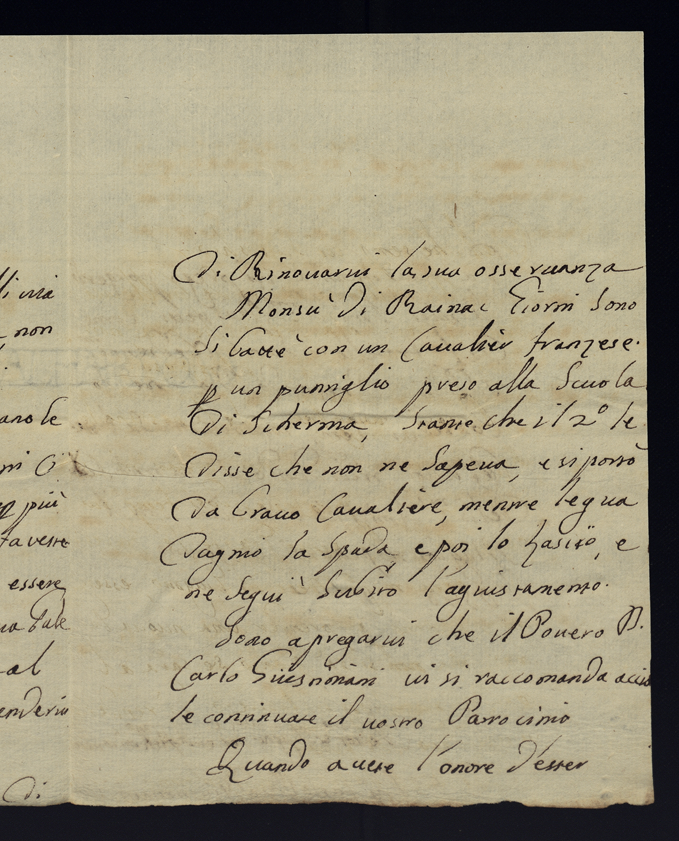 lli via
non
ano le
ni O
più
taveste
essere
al
endervi
di
di Rinouarui la sua osseruanza
Monsù di Rainac Giorni Sono
si battè con un Caualier franzese.
p un puntiglio preso alla Scuola
di Scherma, stante che il 2º le
disse che non ne Sapeua, e si portò
da brauo Caualiere, mentre le gua
dagniò la Spada, e poi lo lasciò, e
ne Seguì Subito l'agiustamento.
Sono a pregarui che il Pouero B.
Carlo Giustiniani ui si raccomanda acciò
le continuate il uostro Patrocinio
Quando auete l'onore d'esser